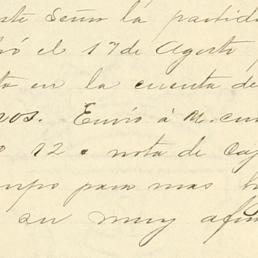 ste Señor la partida
ó el 17 de Agosto
to en la cuenta de
ros. Envio á M. cu
12 . nota de Caj
mpo para mas
su muy afm